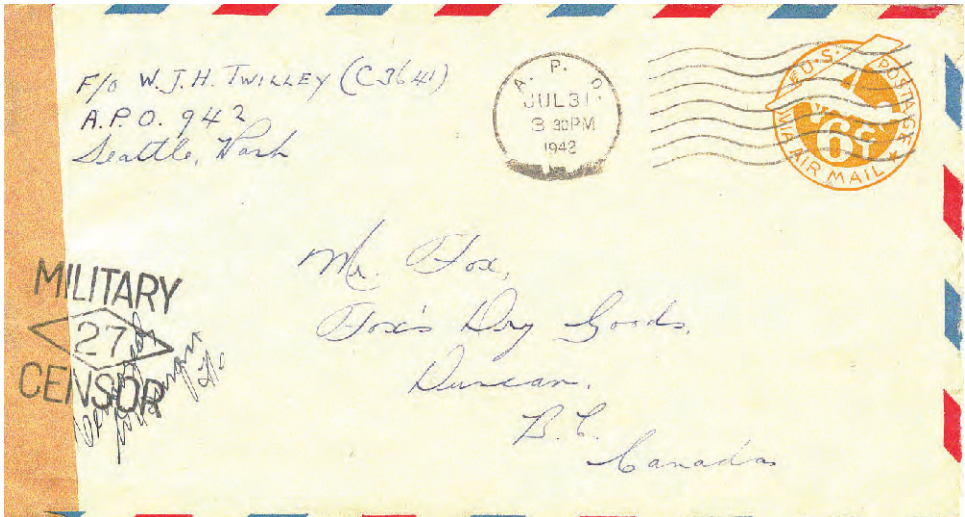 F/o W.J.H. TWILLEY (C3641)
A.P.O. 942
Seattle, Wash
A. P. O.
JUL 31
3 30 PM
1942
U.S. POSTAGE
6¢
VIA AIR MAIL
MILITARY
27
CENSOR
Mr. Fox,
Fox's Dry Goods,
Duncan.
B.C.
Canada